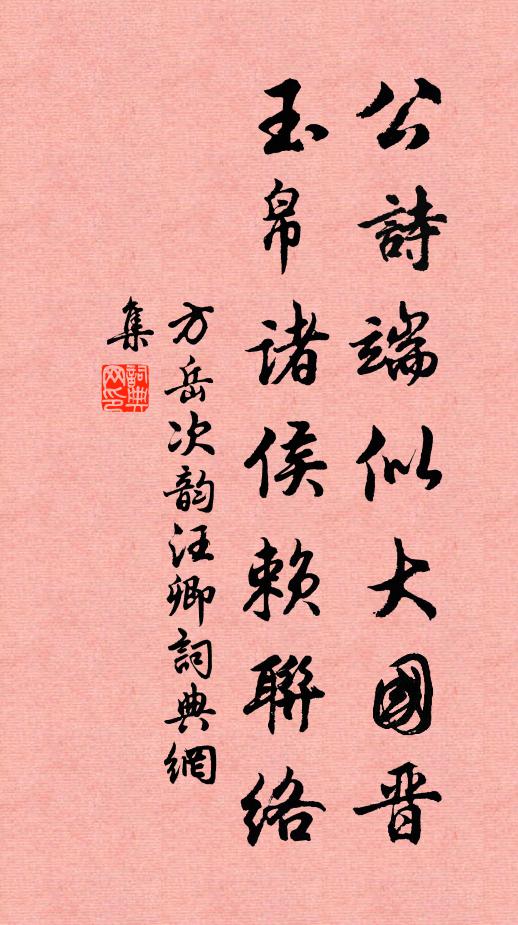 公詩端似大國晋
玉帛諸侯賴聯絡
方岳次韵汪卿詞典網
集
詞典網印